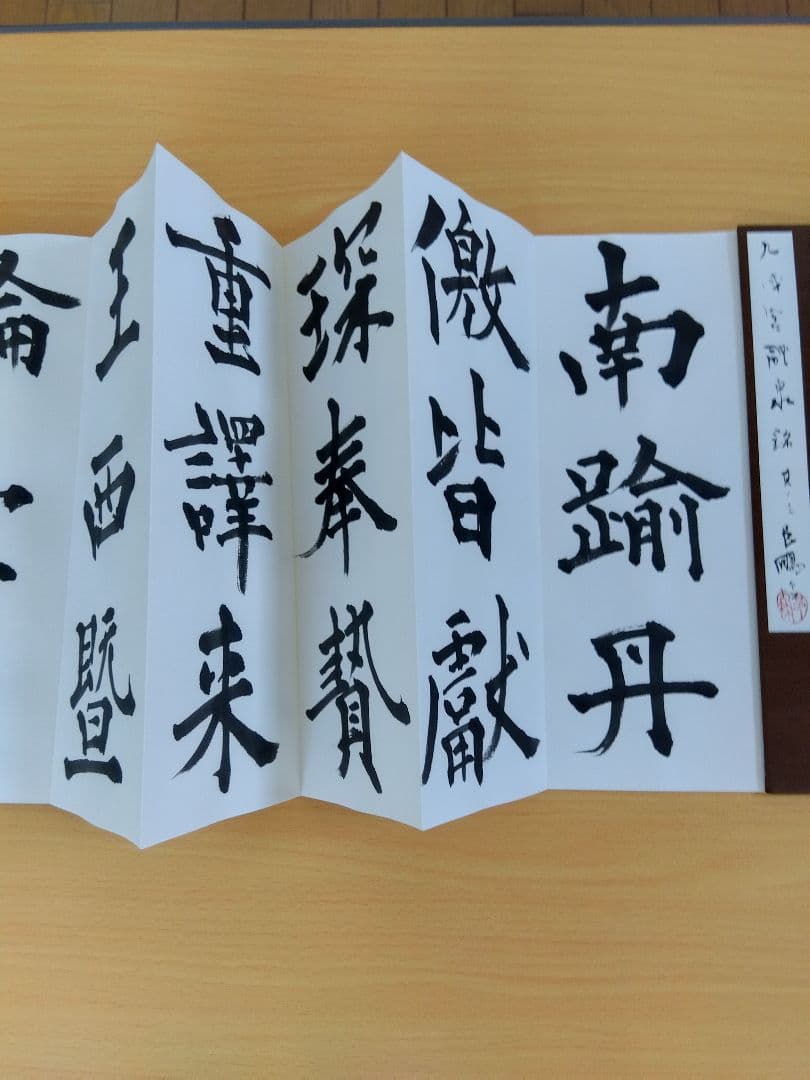 九成宮醴泉銘
南踰丹
徼皆獻
琛奉贄
重譯来
王西暨